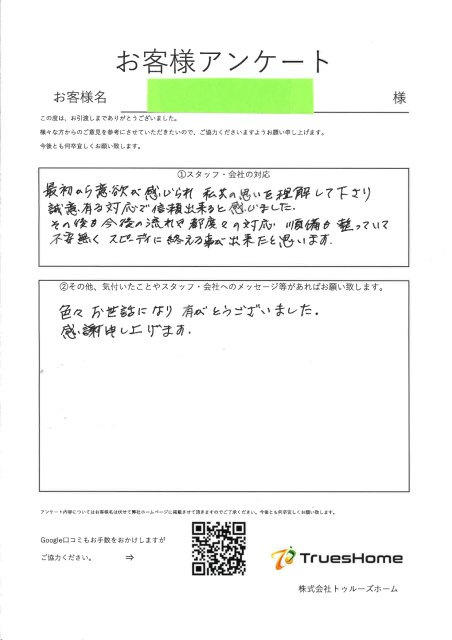 お客様アンケート
お客様名
様
この度は、お引渡しまでありがとうございました。
様々な方からのご意見を参考にさせていただきたいので、ご協力くださいますようお願い申し上げます。
今後とも何卒宜しくお願い致します。
①スタッフ・会社の対応
最初から意欲が感じられ 私共の思いを理解して下さり
誠意有る対応で信頼出来ると感じました。
その後も今後の流れや都度々の対応 順備も整っていて
不安無く スピーディに終える事が出来たと思います。
②その他、気付いたことやスタッフ・会社へのメッセージ等があればお願い致します。
色々お世話になり 有がとうございました。
感謝申し上げます。
アンケート内容についてはお客様名は伏せて弊社ホームページに掲載させて頂きますのでご了承ください。今後とも何卒宜しくお願い致します。
Google口コミもお手数をおかけしますが
ご協力ください。 ⇒
TruesHome
株式会社トゥルーズホーム